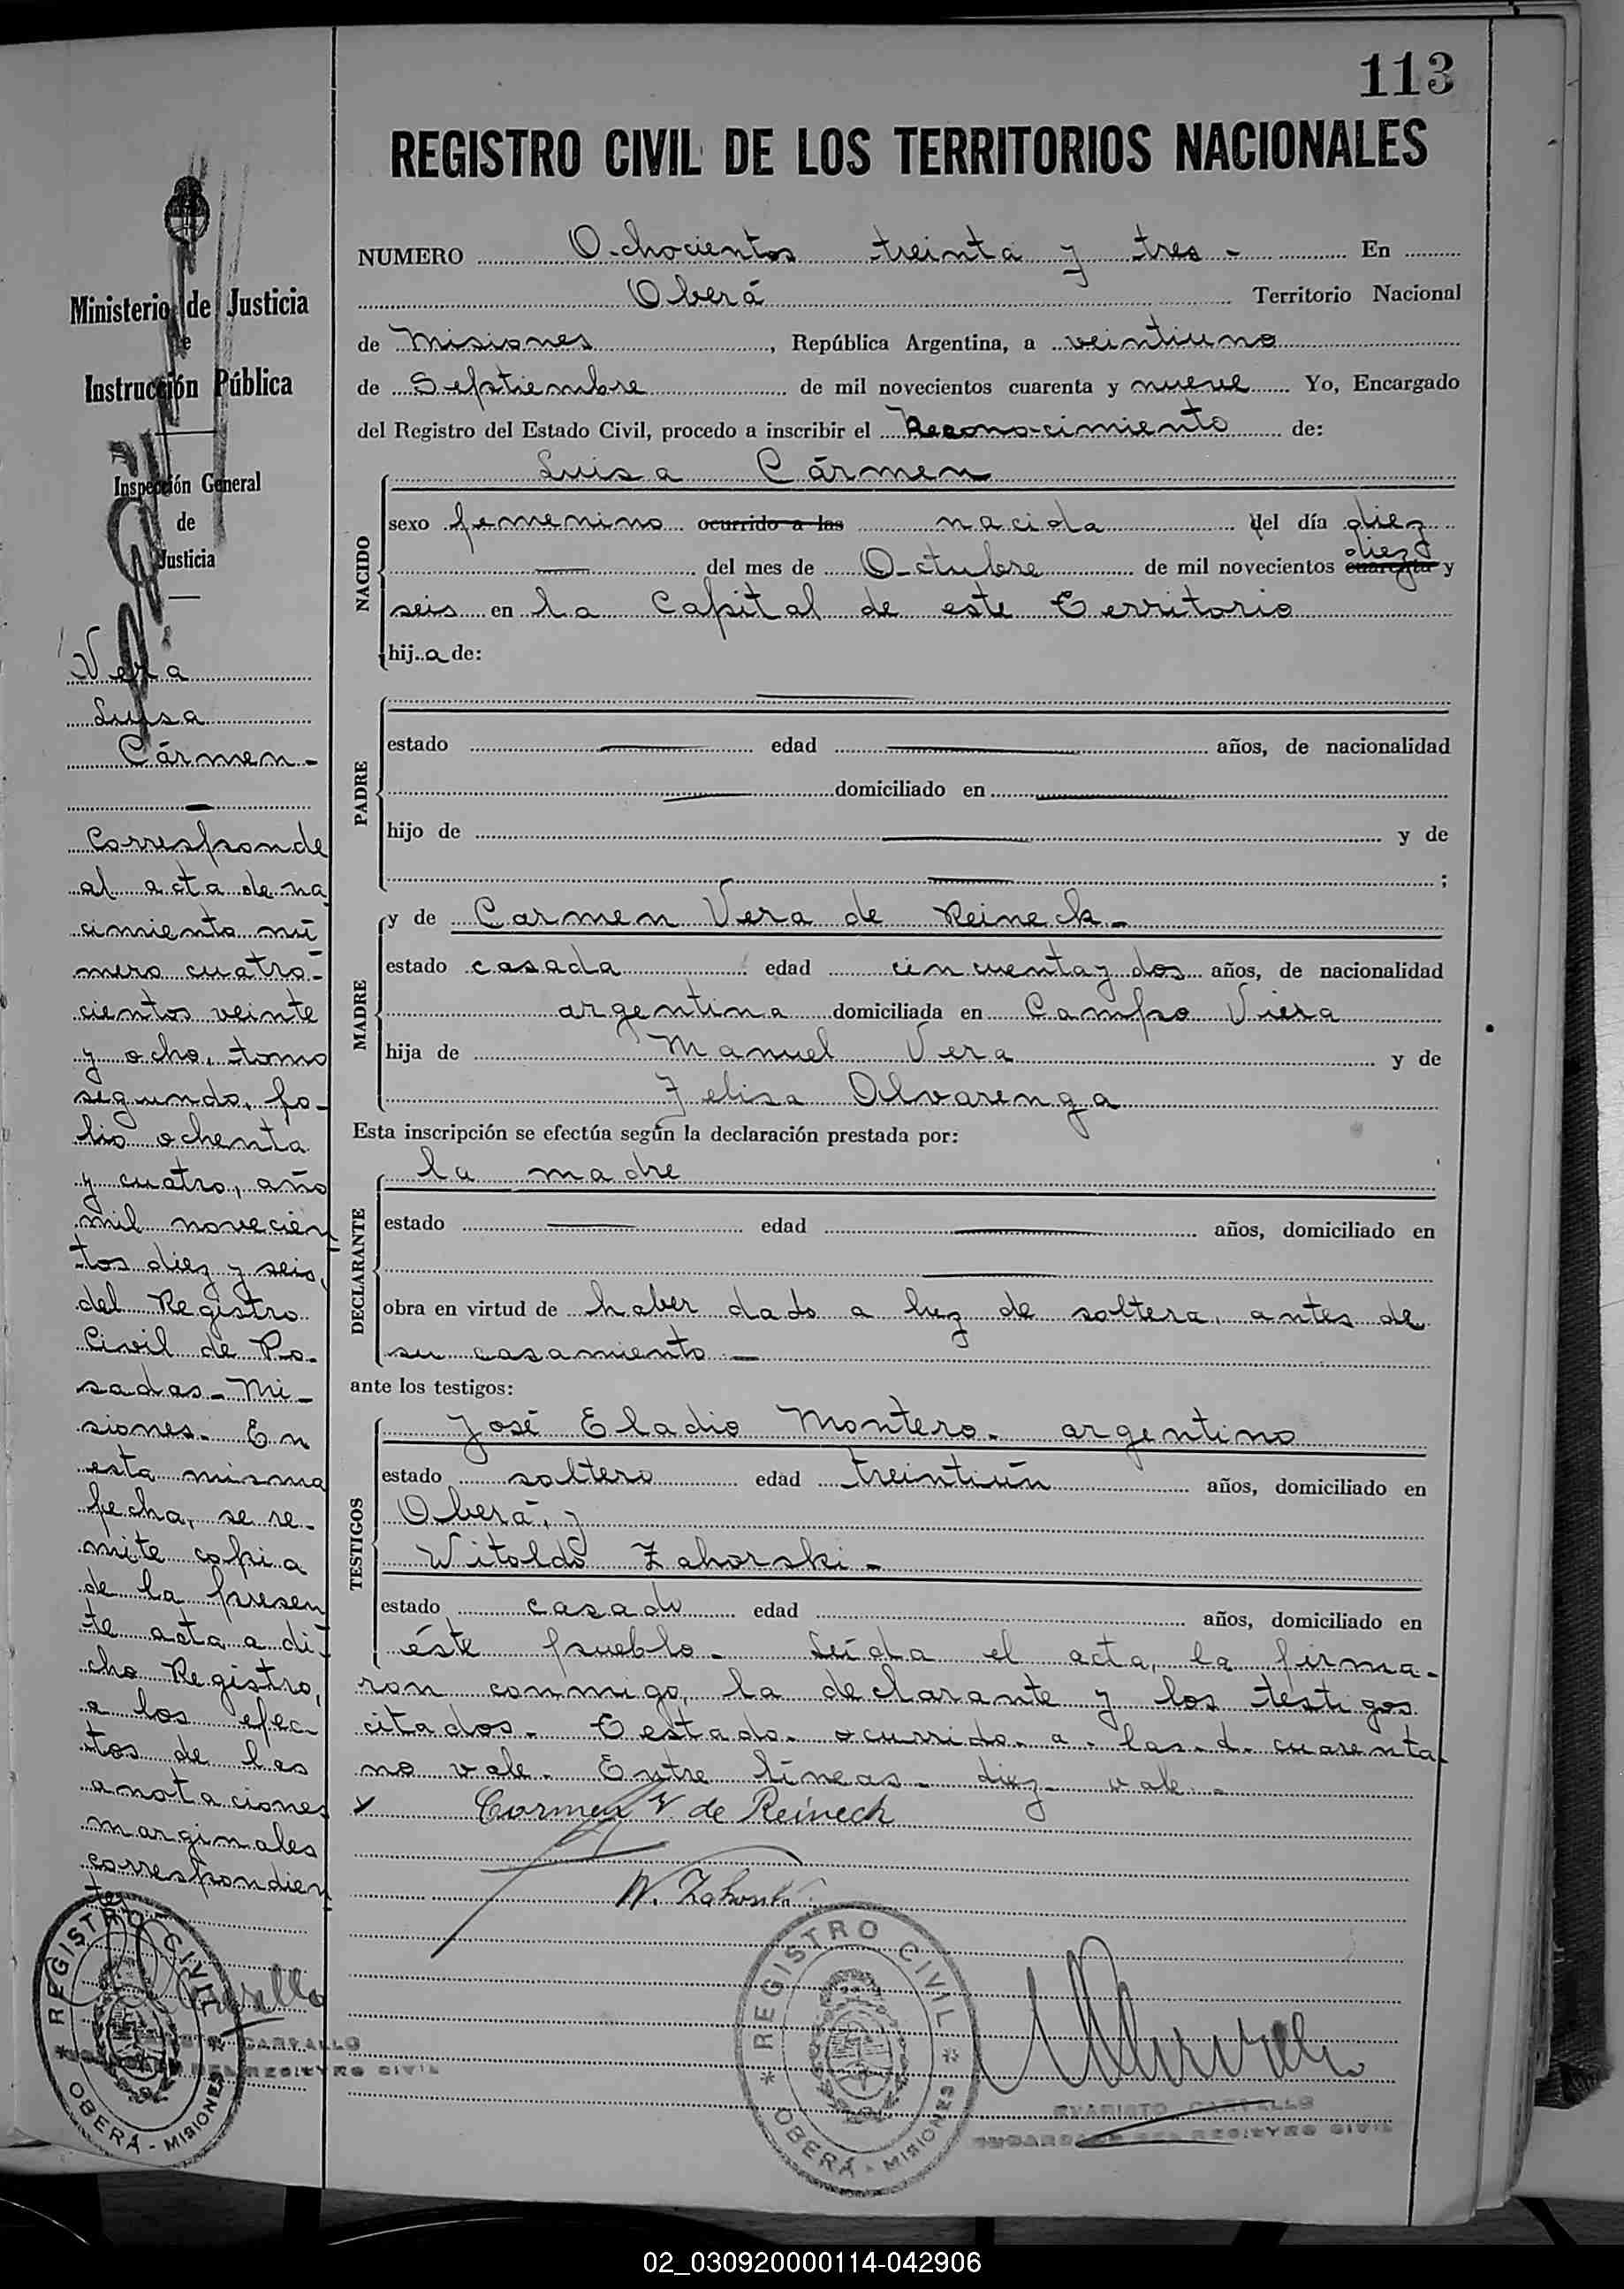 113
REGISTRO CIVIL DE LOS TERRITORIOS NACIONALES
NUMERO Ochocientos treinta y tres - En
Oberá Territorio Nacional
de Misiones, República Argentina, a veintiuno
de Septiembre de mil novecientos cuarenta y nueve Yo, Encargado
del Registro del Estado Civil, procedo a inscribir el Reconocimiento de:
NACIDO
Luisa Cármen
sexo femenino ocurrido a las nacida del día diez
diez
del mes de Octubre de mil novecientos cuarenta y
seis en la Capital de este Territorio
hij a de:
PADRE
estado edad años, de nacionalidad
domiciliado en
hijo de y de
;
MADRE
y de Carmen Vera de Reineck -
estado casada edad cincuenta y dos años, de nacionalidad
argentina domiciliada en Campo Viera
hija de Manuel Vera y de
Felisa Alvarenga
Esta inscripción se efectúa según la declaración prestada por:
DECLARANTE
la madre
estado edad años, domiciliado en
obra en virtud de haber dado a luz de soltera, antes de
su casamiento -
ante los testigos:
TESTIGOS
José Eladio Montero - argentino
estado soltero edad treintiún años, domiciliado en
Oberá, y
Witoldo Zahorski -
estado casado edad años, domiciliado en
éste pueblo - Leída el acta, la firma-
ron conmigo, la declarante y los testigos
citados - Testado - ocurrido - a - las - d - cuarenta -
no vale - Entre líneas - diez - vale -
Carmen V de Reineck
W. Zahorski
REGISTRO CIVIL
OBERÁ - MISIONES
EVARISTO CARVALLO
ENCARGADO DEL REGISTRO CIVIL
Ministerio de Justicia
e
Instrucción Pública
Inspección General
de
Justicia
Vera
Luisa
Cármen -
Corresponde
al acta de na
cimiento nú
mero cuatro-
cientos veinte
y ocho, tomo
segundo, fo-
lio ochenta
y cuatro, año
mil novecien
tos diez y seis,
del Registro
Civil de Po-
sadas - Mi-
siones - En
esta misma
fecha, se re-
mite copia
de la presen
te acta a di-
cho Registro,
a los efec-
tos de las
anotaciones
marginales
correspondien
tes
REGISTRO CIVIL
OBERÁ - MISIONES
CARVALLO
REGISTRO CIVIL
02_030920000114-042906